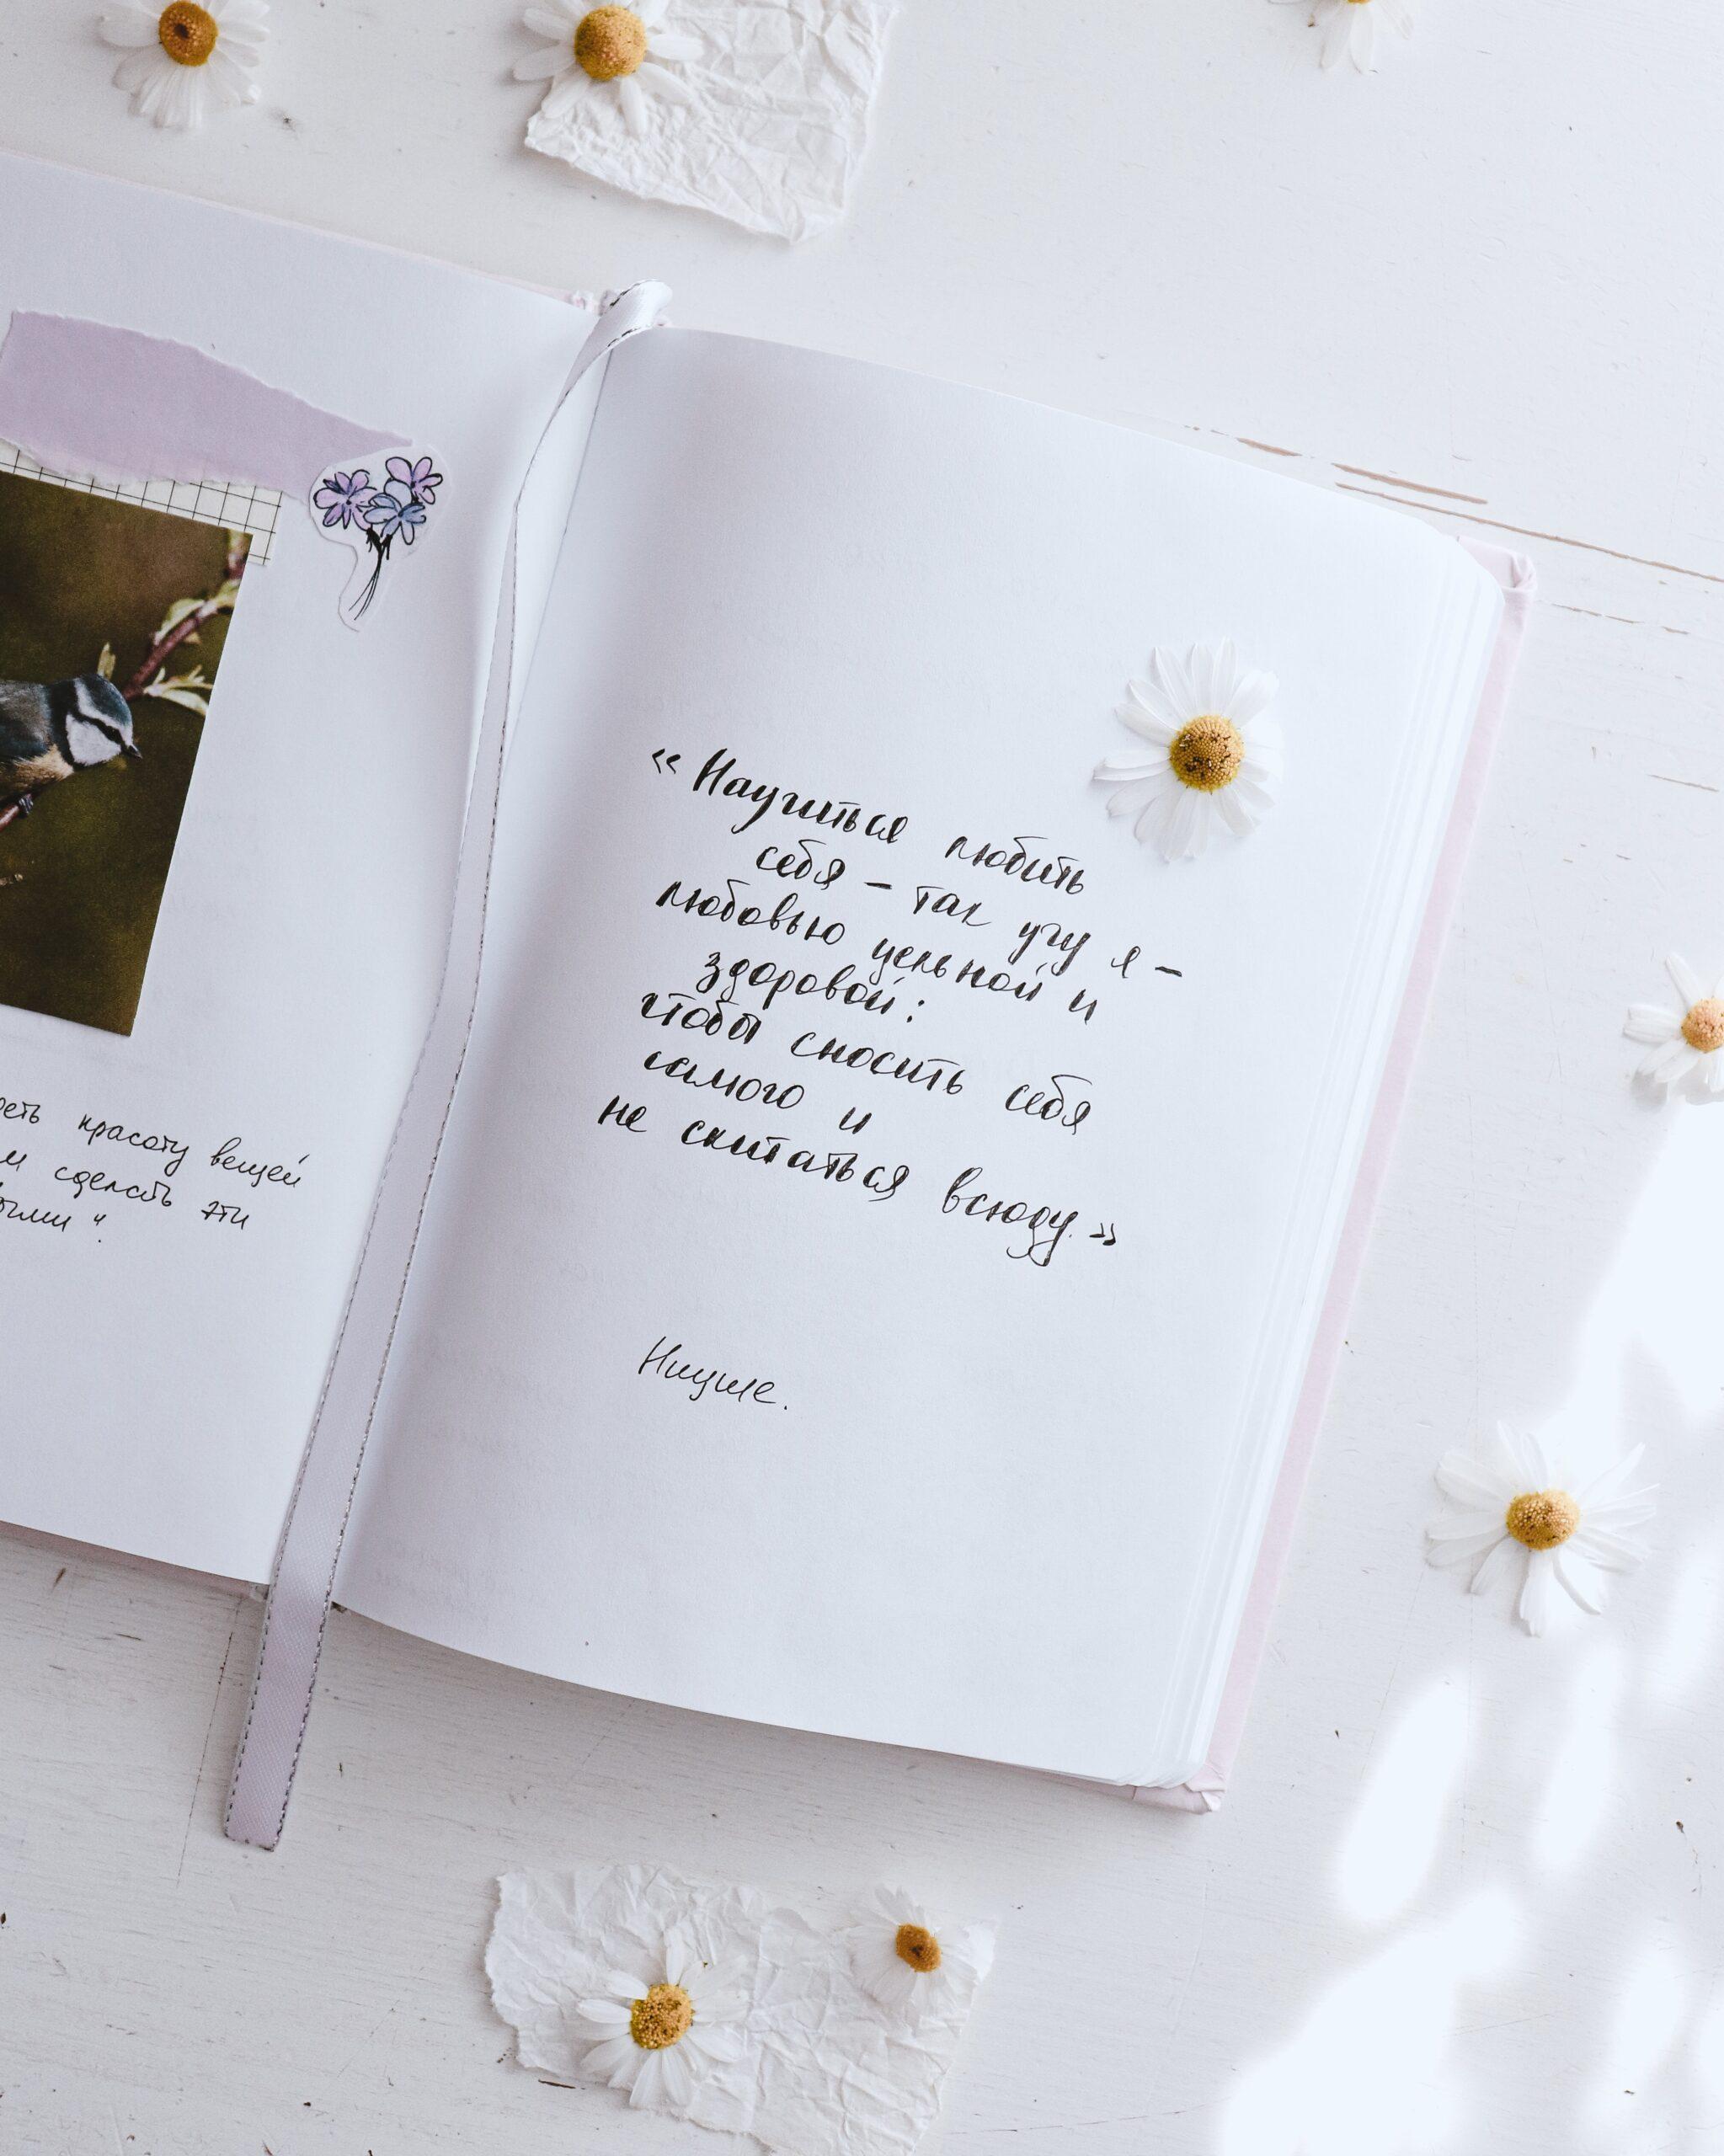 реть красоту вещей
м сделать эти
ыми“.
« Научиться любить
себя – так учу я –
любовью цельной и
здоровой:
чтобы сносить себя
самого и
не скитаться всюду. »
Ницше.